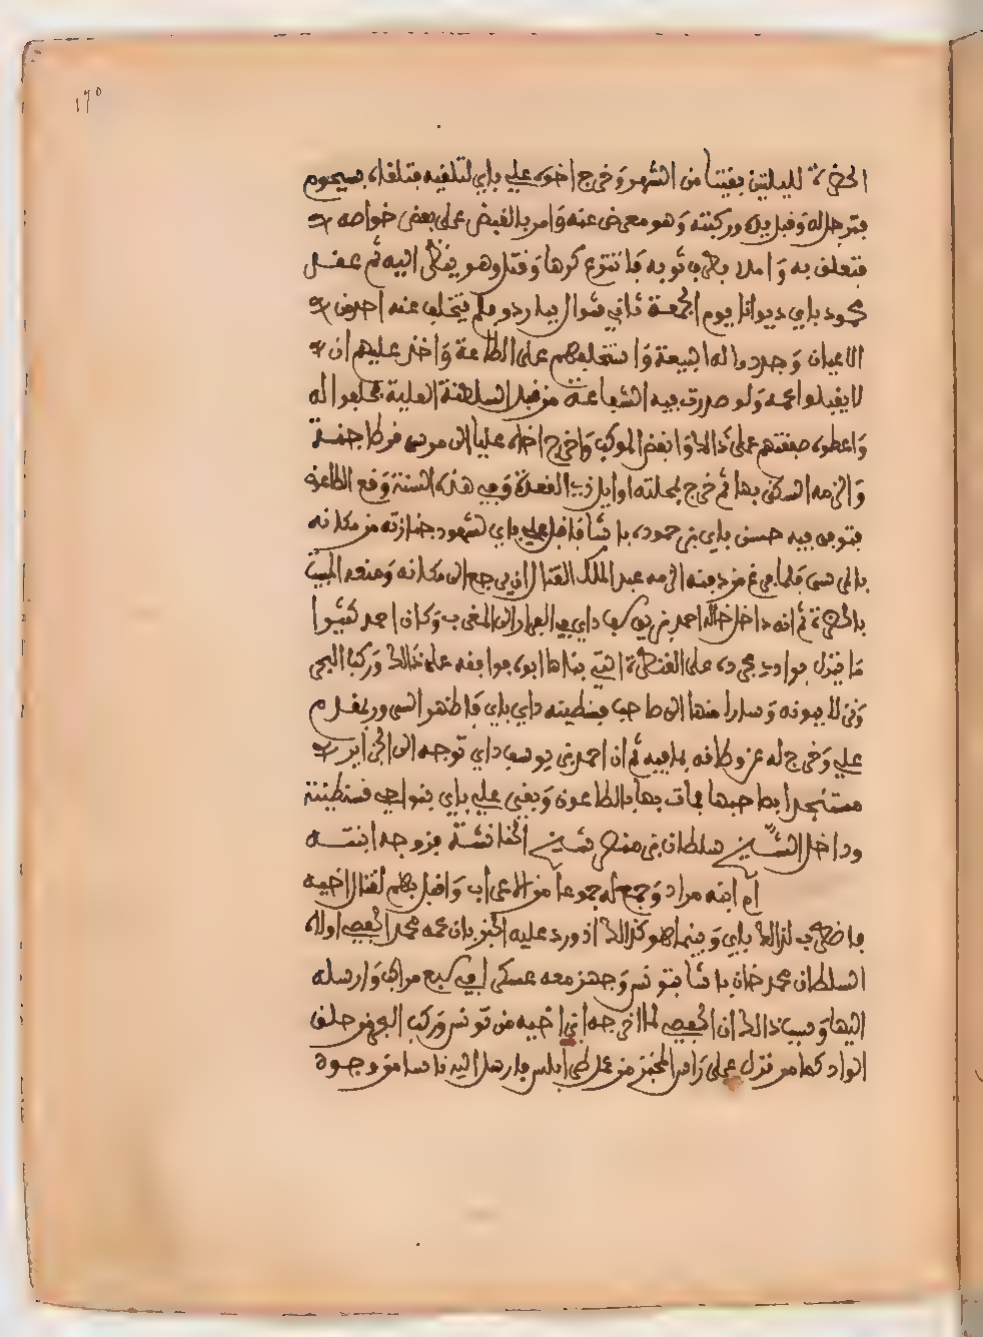 ١٦٥
الحضرة لليلتين بقيتا من الشهر وخرج اخوه علي باي لتلقيه فتلقاه بسيجوم
فترجل له وقبل يده وركبته وهو معرض عنه وامر بالقبض على بعض خواصه
فتعلق به وامسك بطرف ثوبه فانتزع كرها وقتل وهو ينظر اليه ثم عقد
محمود باي ديوانا يوم الجمعة ثاني شوال بباردو فلم يتخلف عنه احد من
الاعيان وجددوا له البيعة واستحلفهم على الطاعة واخذ عليهم ان
لا يقبلوا عمه ولو صدرت فيه الشفاعة من قبل السلطنة العلية فحلفوا له
واعطوه صفقتهم على ذالك وانفض الموكب واخرج اخاه عليا الى مرسى قرطاجنة
والزمه السكنى بها ثم خرج لمحلته اوايل ذي القعدة وفي هذه السنة وقع الطاعون
فتوفي فيه حسن باي بن حموده باشا فاقبل علي باي لشهود جنازته من مكانه
بالمرسى فلما فرغ من دفنه الزمه عبد الملك القتال ان يرجع الى مكانه ومنعه المبيت
بالحضرة ثم انه داخل خاله احمد بن يوسف داي في الفرار الى المغرب وكان احمد كثيرا
ما ينزل بوادي مجردة على القنطرة التي بناها ابوه فوافقه على ذالك وركبا البحر
ونزلا ببونه وسارا منها الى صاحب قسطينه داي باي فاظهر السرور بمقدم
علي وخرج له عن وطاقه بما فيه ثم ان احمد بن يوسف داي توجه الى الجزاير
مستنجدا بصاحبها فمات بها بالطاعون وبقي علي باي بنواحي قسنطينة
وداخل الشيخ سلطان بن منصر شيخ الحنانشة فزوجه ابنته
ام ابنه مراد وجمع له جموعا من الاعراب واقبل بهم لقتال اخيه
فاضطرب لذالك باي وبينما هو كذالك اذ ورد عليه الخبر بان عمه محمد الحفصي اولاه
السلطان محمد خان باشا بتونس وجهز معه عسكرا في سبع مراكب وارسله
اليها وسبب ذالك ان الحفصي لما اخرجه ابني اخيه من تونس وركب البحر من حلق
الواد كما مر نزل على راس المخبز من عمل طرابلس فارسل اليه ناسا من وجوه